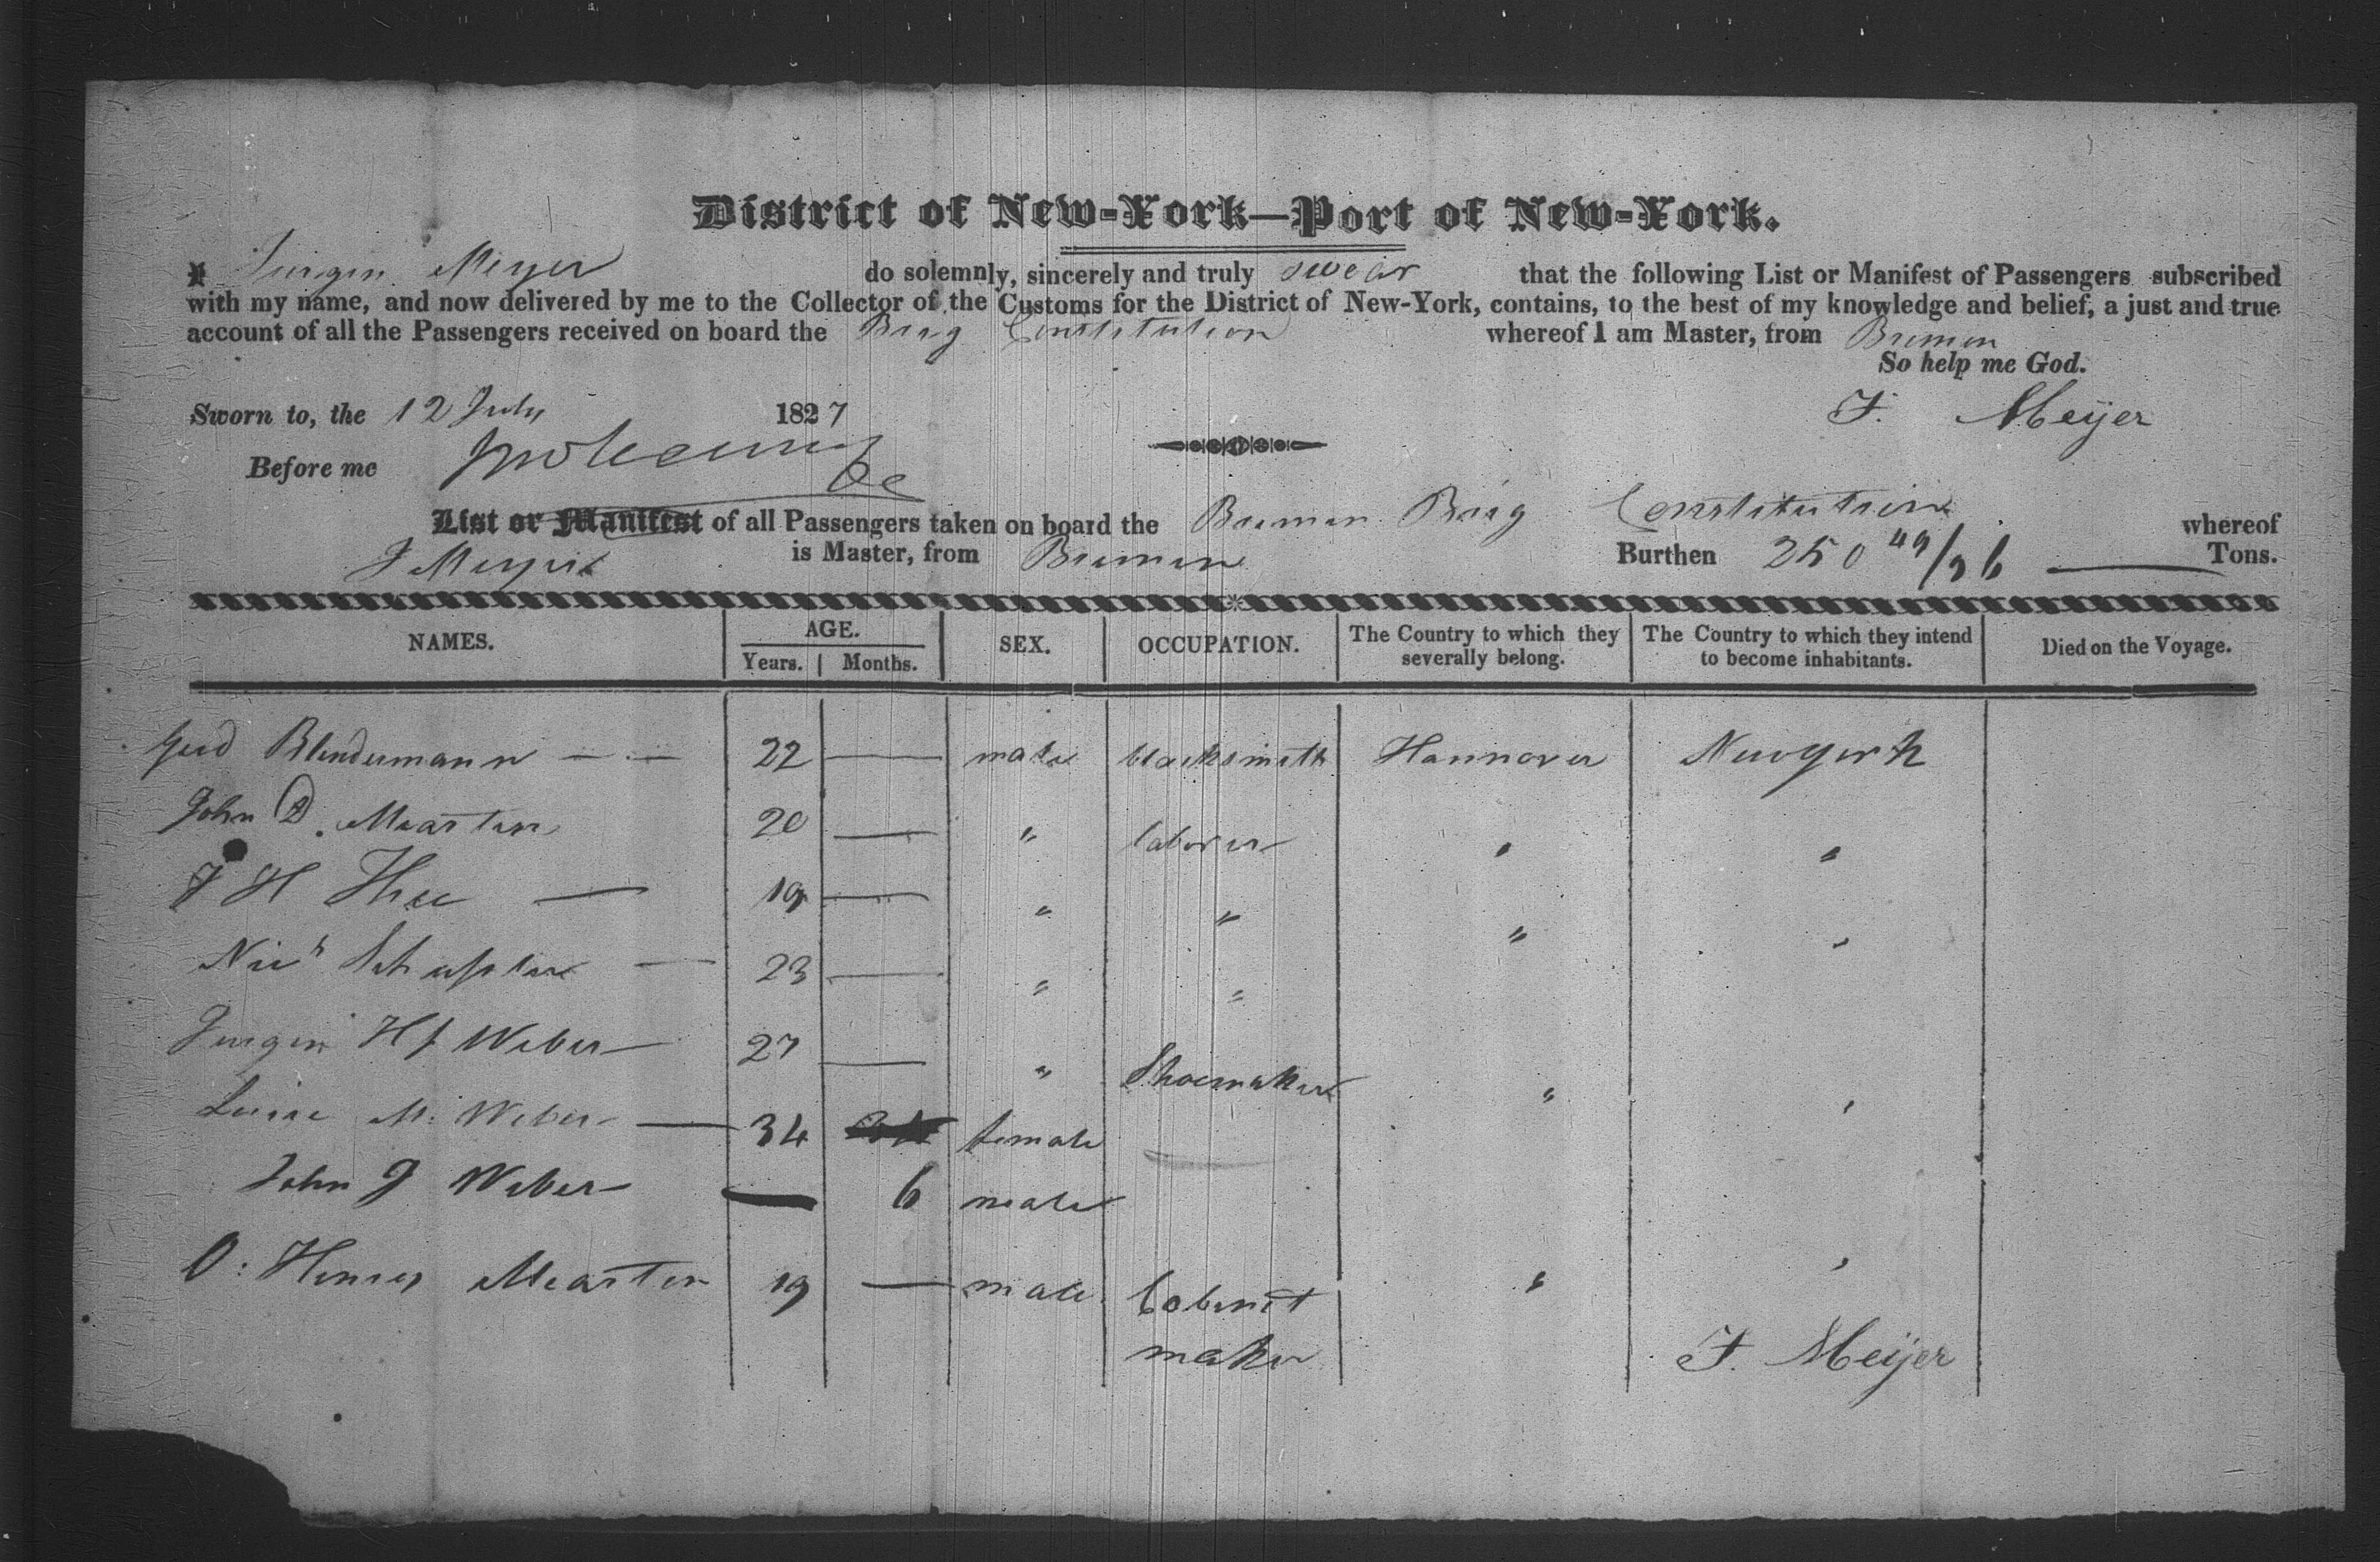 District of New-York—Port of New-York.
I Jurgen Meyer do solemnly, sincerely and truly swear that the following List or Manifest of Passengers subscribed
with my name, and now delivered by me to the Collector of the Customs for the District of New-York, contains, to the best of my knowledge and belief, a just and true
account of all the Passengers received on board the Brig Constitution whereof I am Master, from Bremen
So help me God.
Sworn to, the 12 July 1827
J. Meijer
Before me
List or Manifest of all Passengers taken on board the Bremen Brig Constitution whereof
J Meyer is Master, from Bremen Burthen 250 49/96 Tons.
NAMES. AGE. SEX. OCCUPATION. The Country to which they severally belong. The Country to which they intend to become inhabitants. Died on the Voyage.
Years. Months.
Gerd Blendermann — — 22 — male blacksmith Hannover Newyork
John D. Maarten 20 — " laborer " "
J H Thee — 19 — " " " "
Nics — 23 — " "
Jurgen H J Weber — 27 — " Shoemaker " "
Luise M. Weber — 34 female
John J Weber — 6 male
O: Henry Maarten 19 — male Cabinet " "
maker
J. Meijer